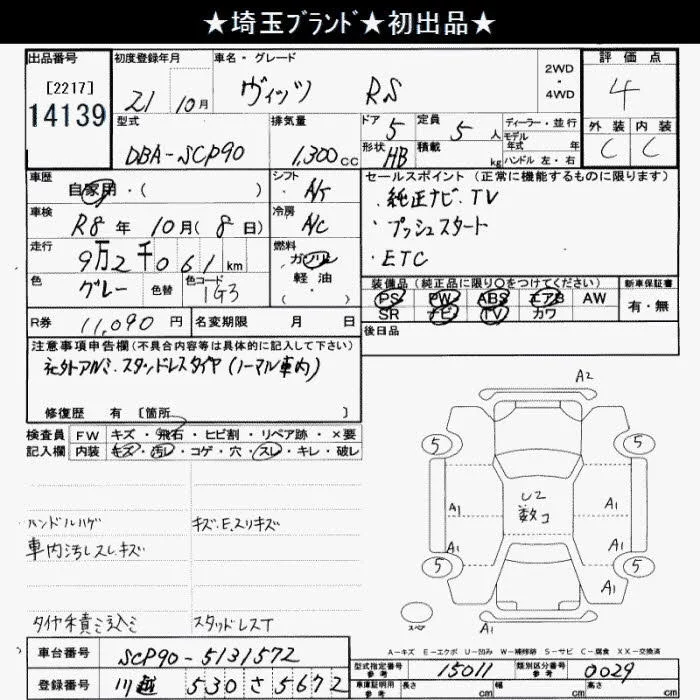 ★埼玉ブランド★初出品★
出品番号 初度登録年月 車名・グレード 2WD・4WD 評価点
[2217] 14139 21 10月 ヴィッツ RS 4
型式 排気量 ドア 5 定員 5人 ディーラー・並行 外装 内装
DBA-SCP90 1,300cc 形状 HB 積載 kg モデル年式 年 C C
ハンドル 左・右
車歴 自家用・( ) シフト A/T セールスポイント(正常に機能するものに限ります)
車検 R8年 10月(8日) 冷房 A/C ・純正ナビ、TV
・プッシュスタート
走行 9万2千061km 燃料 ガソリン 軽油 ・( ) ・ETC
色 グレー 色替 色コード 1G3 装備品(純正品に限り○をつけてください) 新車保証書
PS PW ABS エアB AW 有・無
R券 11,090円 名変期限 月 日 SR ナビ TV カワ
後日品
注意事項申告欄(不具合内容等は具体的に記入して下さい)
社外アルミ・スタッドレスタイヤ(ノーマル車内)
修復歴 有 [箇所 ]
検査員 FW キズ・飛石・ヒビ割・リペア跡・×要
記入欄 内装 キズ・汚レ・コゲ・穴・スレ・キレ・破レ
A2
5 5
A1 U2 数コ A1
A1 A1
5 5
A1
A1
スペア
ハンドルハゲ キズ、E、スリキズ
車内汚レスレキズ
タイヤ積ミ込ミ スタッドレスT
A-キズ E-エクボ U-凹み W-補修跡 S-サビ C-腐食 XX-交換済
車台番号 SCP90-5131572 型式指定番号 参考 15011 類別区分番号 参考 0029
登録番号 川越 530 さ 5672 車庫証明用 参考 長さ cm 幅 cm 高さ cm